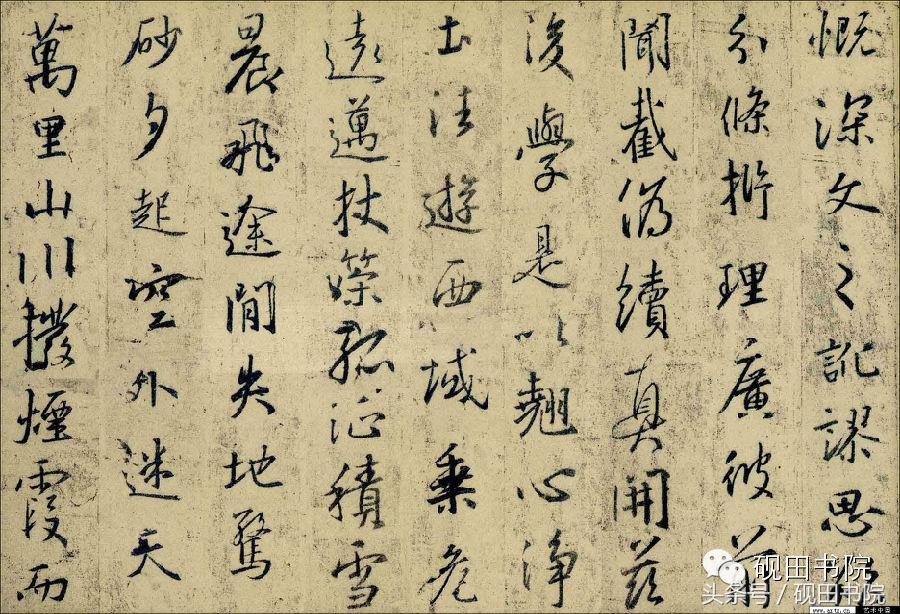 慨深文之訛謬思
分條析理廣彼前
聞截偽續真開茲
後學是以翹心淨
土法遊西域乗危
遠邁杖策孤征積雪
晨飛途間失地驚
砂夕起空外迷天
萬里山川撥煙霞而
砚田书院
头条号／砚田书院
www.artx.cn 艺术中国